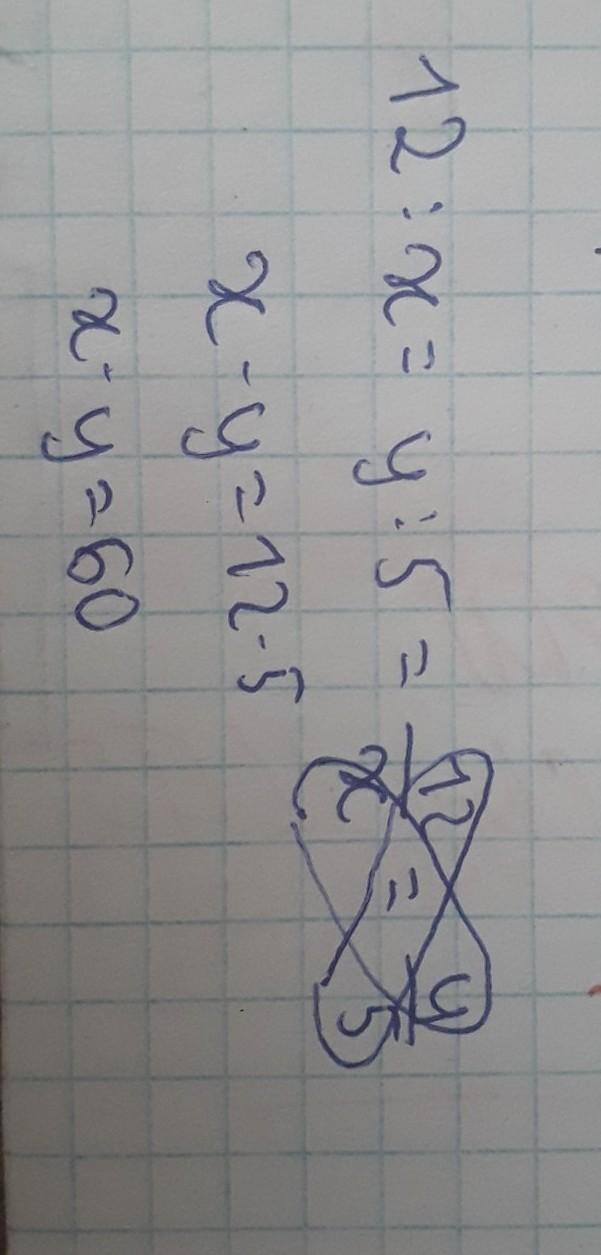 12 : x = y : 5 = 12/x = y/5
x · y = 12 · 5
x · y = 60